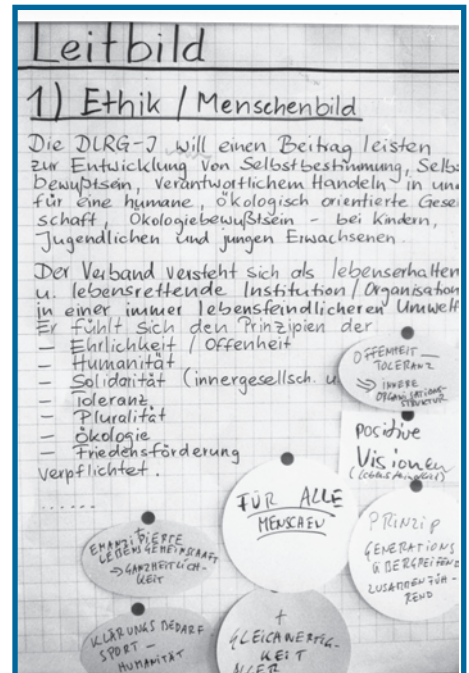 Leitbild
1) Ethik / Menschenbild
Die DLRG-J will einen Beitrag leisten
zur Entwicklung von Selbstbestimmung, Selbs
bewußtsein, verantwortlichem Handeln in un
für eine humane, ökologisch orientierte Gese
schaft, Ökologiebewußtsein - bei Kindern,
Jugendlichen und jungen Erwachsenen.
Der Verband versteht sich als lebenserhalten
u. lebensrettende Institution / Organisation
in einer immer lebensfeindlicheren Umwelt
Er fühlt sich den Prinzipien der
- Ehrlichkeit / Offenheit
- Humanität
- Solidarität (innergesellsch. u
- Toleranz
- Pluralität
- Ökologie
- Friedensförderung
verpflichtet.
......
OFFENHEIT —
TOLERANZ
⇒ INNERE
ORGANISATIONS-
STRUKTUR
Positive
Visionen
FÜR ALLE
MENSCHEN
PRINZIP
GENERATIONS
ÜBERGREIFEND
ZUSAMMENFÜH-
REND
EMANZIPIERTE
LEBENSGEMEINSCHAFT
→ GANZHEITLICH-
KEIT
KLÄRUNGSBEDARF
SPORT —
HUMANITÄT
+
GLEICHWERTIG-
KEIT
ALLER